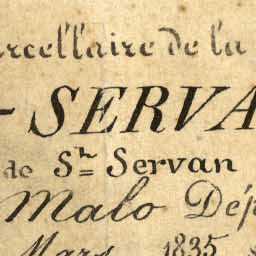 rcellaire de la
- SERVA
de Sth Servan
Malo Dép
Mars 1835